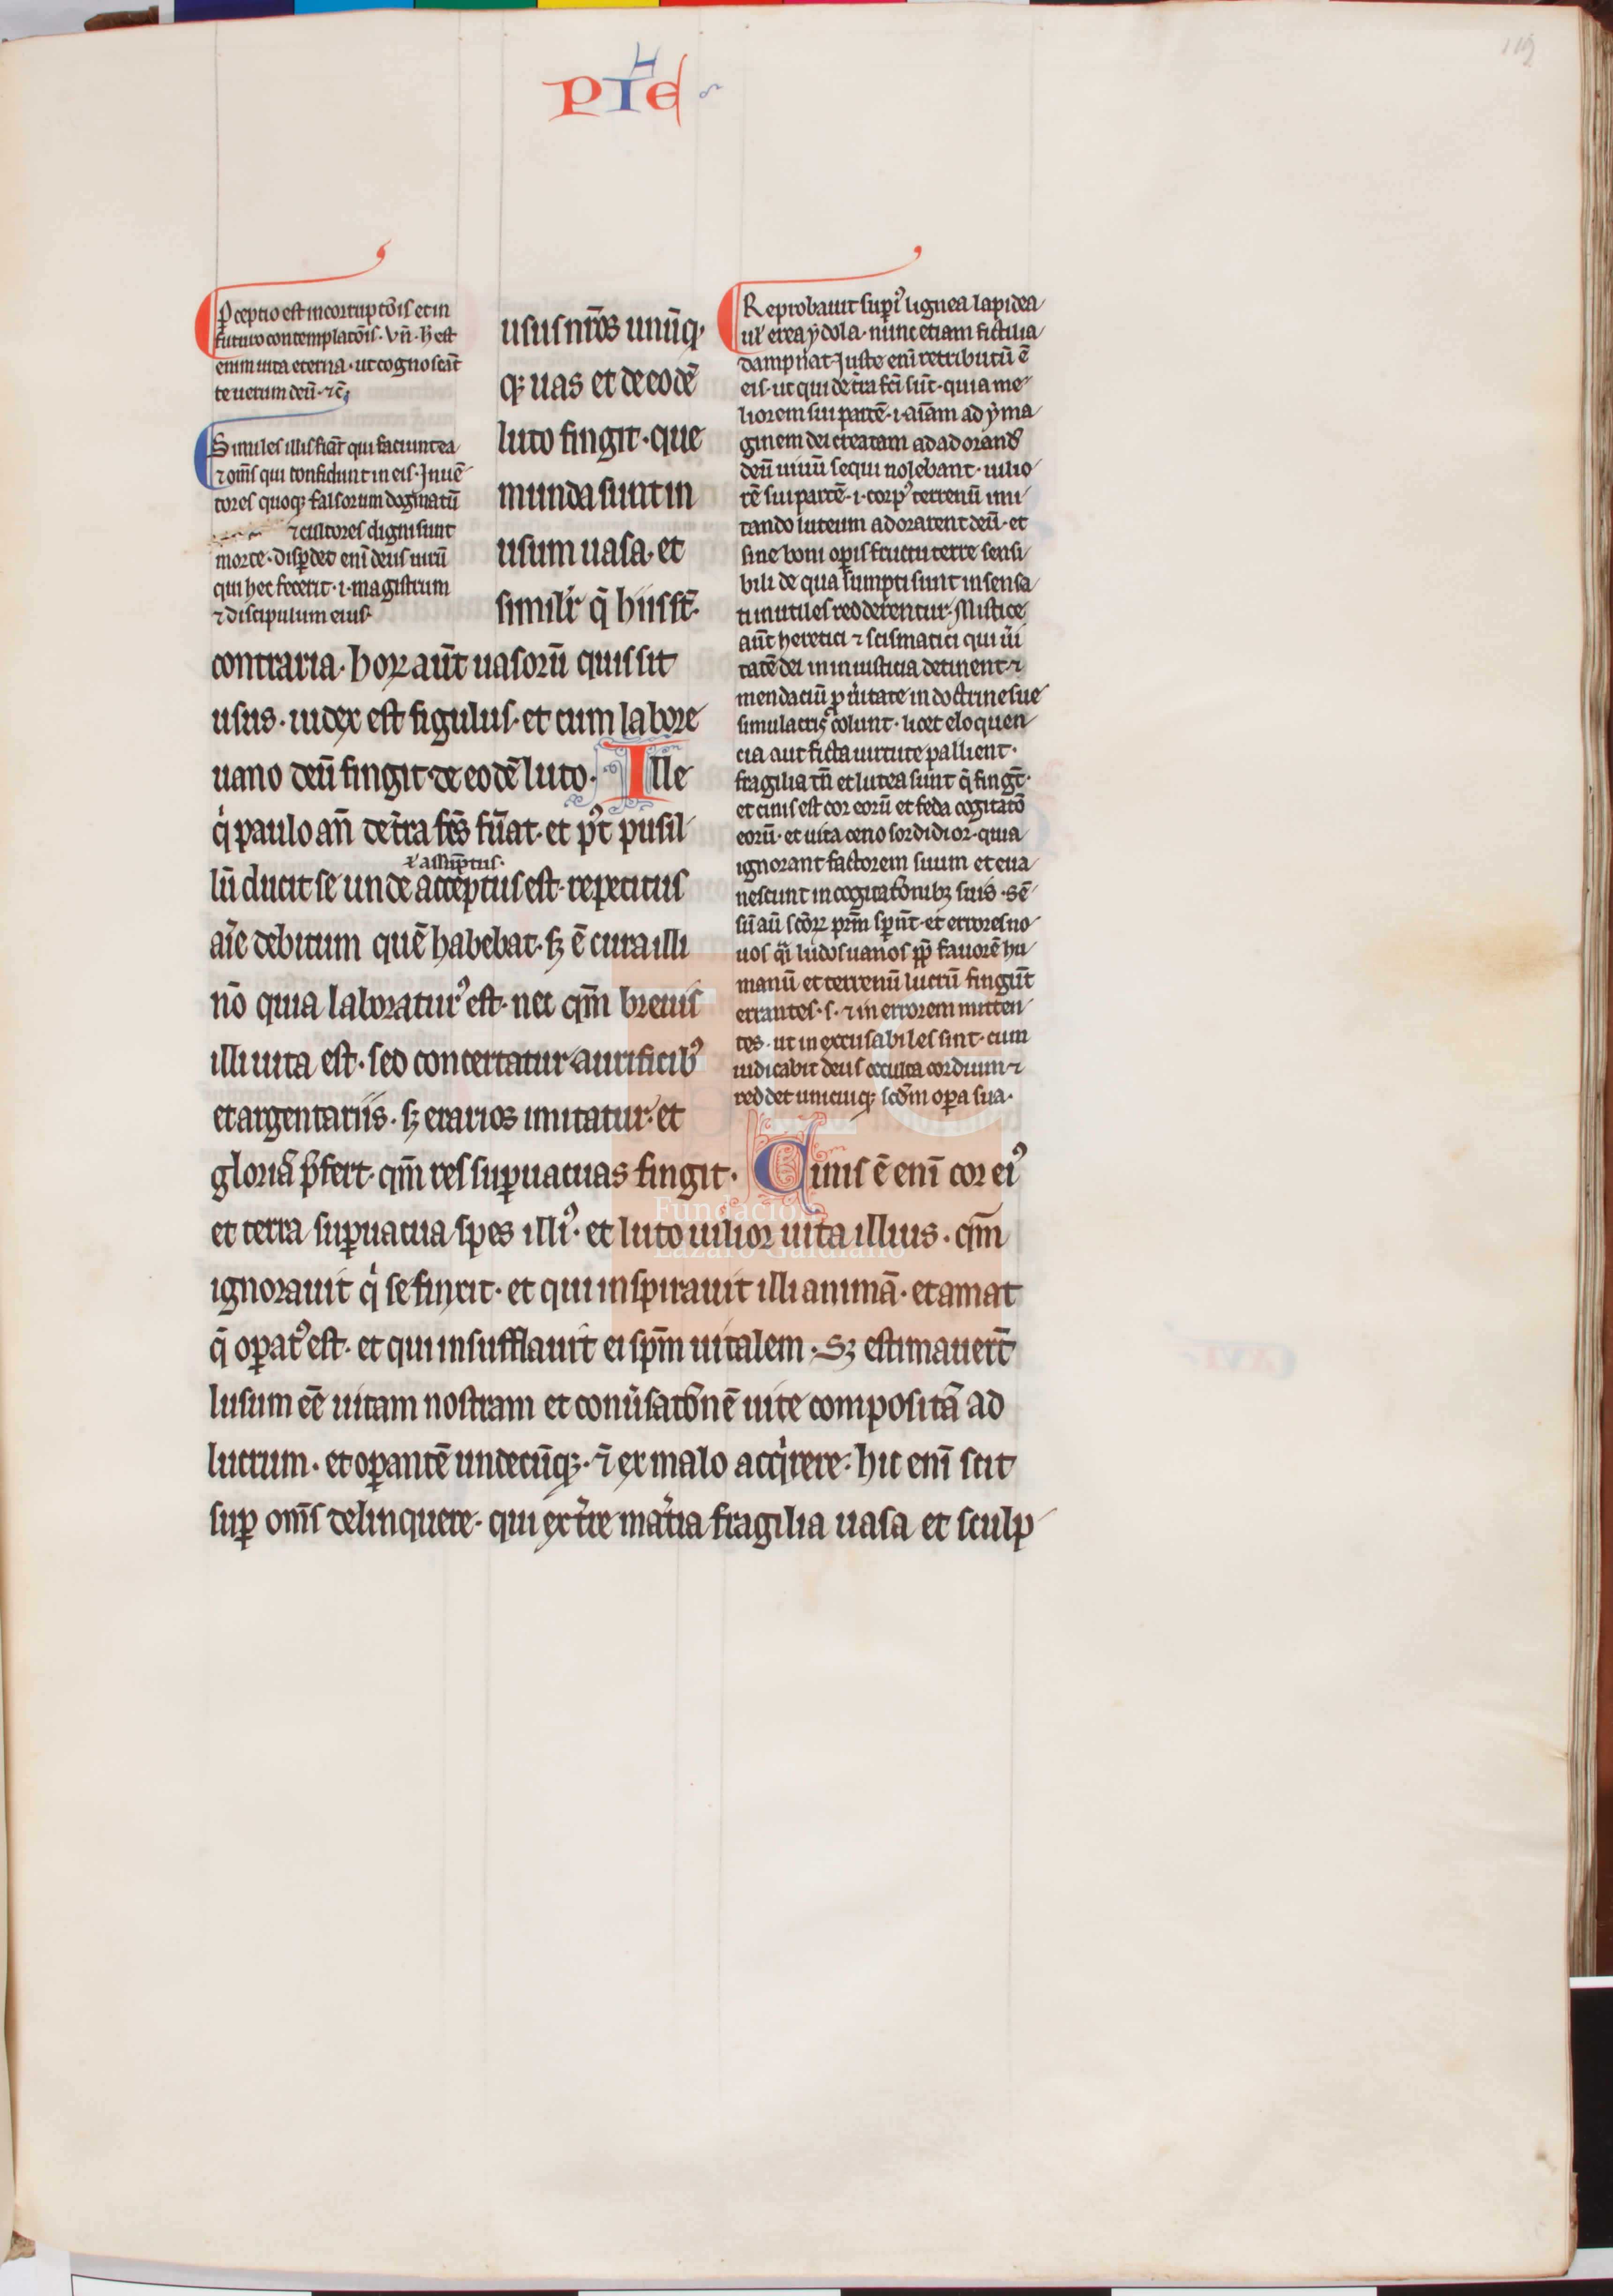 PIHE
119
Pceptio est incorruptōis et in
futuro contemplatōis. Vn̄. h̄ est
enim uita eterna. ut cognoscāt
te uerum deū. ⁊c̄.
Similes illis fiāt qui faciunt ea
⁊ om̄s qui confidunt in eis. Inuē
tores quoq; falsorum dogmatū
⁊ cultores digni sunt
morte. disꝑdet enī deus uirū
qui hec fecerit. i. magistrum
⁊ discipulum eius.
usus nr̄os unūq;
q; uas et de eodē
luto fingit. que
munda sunt in
usum uasa. et
similr̄ q̄ hiis st̄.
contraria. hoꝝ aūt uasorū quis sit
usus. iudex est figulus. et cum labore
uano deū fingit de eodē luto. Ille
q̇ paulo an̄ de t̄ra fc̄s fūat. et p9t pusil
⁊ assūptus.
lū ducit se unde acceptus est. repetitus
aīe debitum quē habebat. sꝫ ē cura illi
nō quia laboraturꝰ est. nec qm̄ breuis
illi uita est. sed concertatur aurificibꝰ
et argentariis. sꝫ erarios imitatur. et
gloriā p̄fert. qm̄ res suꝑuacuas fingit. Cinis ē enī cor eiꝰ
et terra suꝑuacua spes illiꝰ. et luto uilior uita illius. qm̄
ignorauit q̇ se finxit. et qui inspirauit illi animā. et amat
q̄ oꝑatꝰ est. et qui insufflauit ei spm̄ uitalem. Sꝫ estimauer̄t
lusum eē uitam nostram et conu̇satōnē uite compositā ad
lucrum. et oꝑantē undecūqꝫ. ⁊ ex malo acq̇rere. hic enī scit
suꝑ om̄s delinquere. qui ex t̄re mat̄ia fragilia uasa et sculp
Reprobauit supiꝰ lignea lapidea
ul̄ erea ydola. nunc etiam fictilia
dampnat. Iuste enī retributū ē
eis. ut qui de t̄ra fc̄i sūt. quia me
liorem sui partē. i. aīam ad yma
ginem dei creatam ad adorand̄
deū uiuū sequi nolebant. uilio
rē sui partē. i. corpꝰ terrenū imi
tando luteum adorarent deū. et
sine boni oꝑis fructu terre sensi
bili de qua sumpti sunt insensa
ti inutiles redderentur. Mistice
aūt heretici ⁊ scismatici qui u̇i
tatē dei in iniusticia detinent ⁊
mendaciū ꝑ u̇itate in doctrine sue
simulacris colunt. licet eloquen
cia aut ficta uirtute pallient.
fragilia tn̄ et lutea sunt q̄ fingūt.
et cinis est cor eorū et feda cogitatō
eorū. et uita ceno sordidior. quia
ignorant factorem suum et eua
nescunt in cogitatōnibꝫ suis. Sē
sū aū scōꝝ prm̄ sꝑnūt. et errores no
uos q̇i ludos uanos ꝓꝑ fauorē hu
manū et terrenū lucrū fingūt
errantes. s. ⁊ in errorem mitten
tes. ut inexcusabiles sint. cum
iudicabit deus occulta cordium ⁊
reddet unicuiqꝫ scd̄m oꝑa sua.
Fundación
Lázaro Galdiano